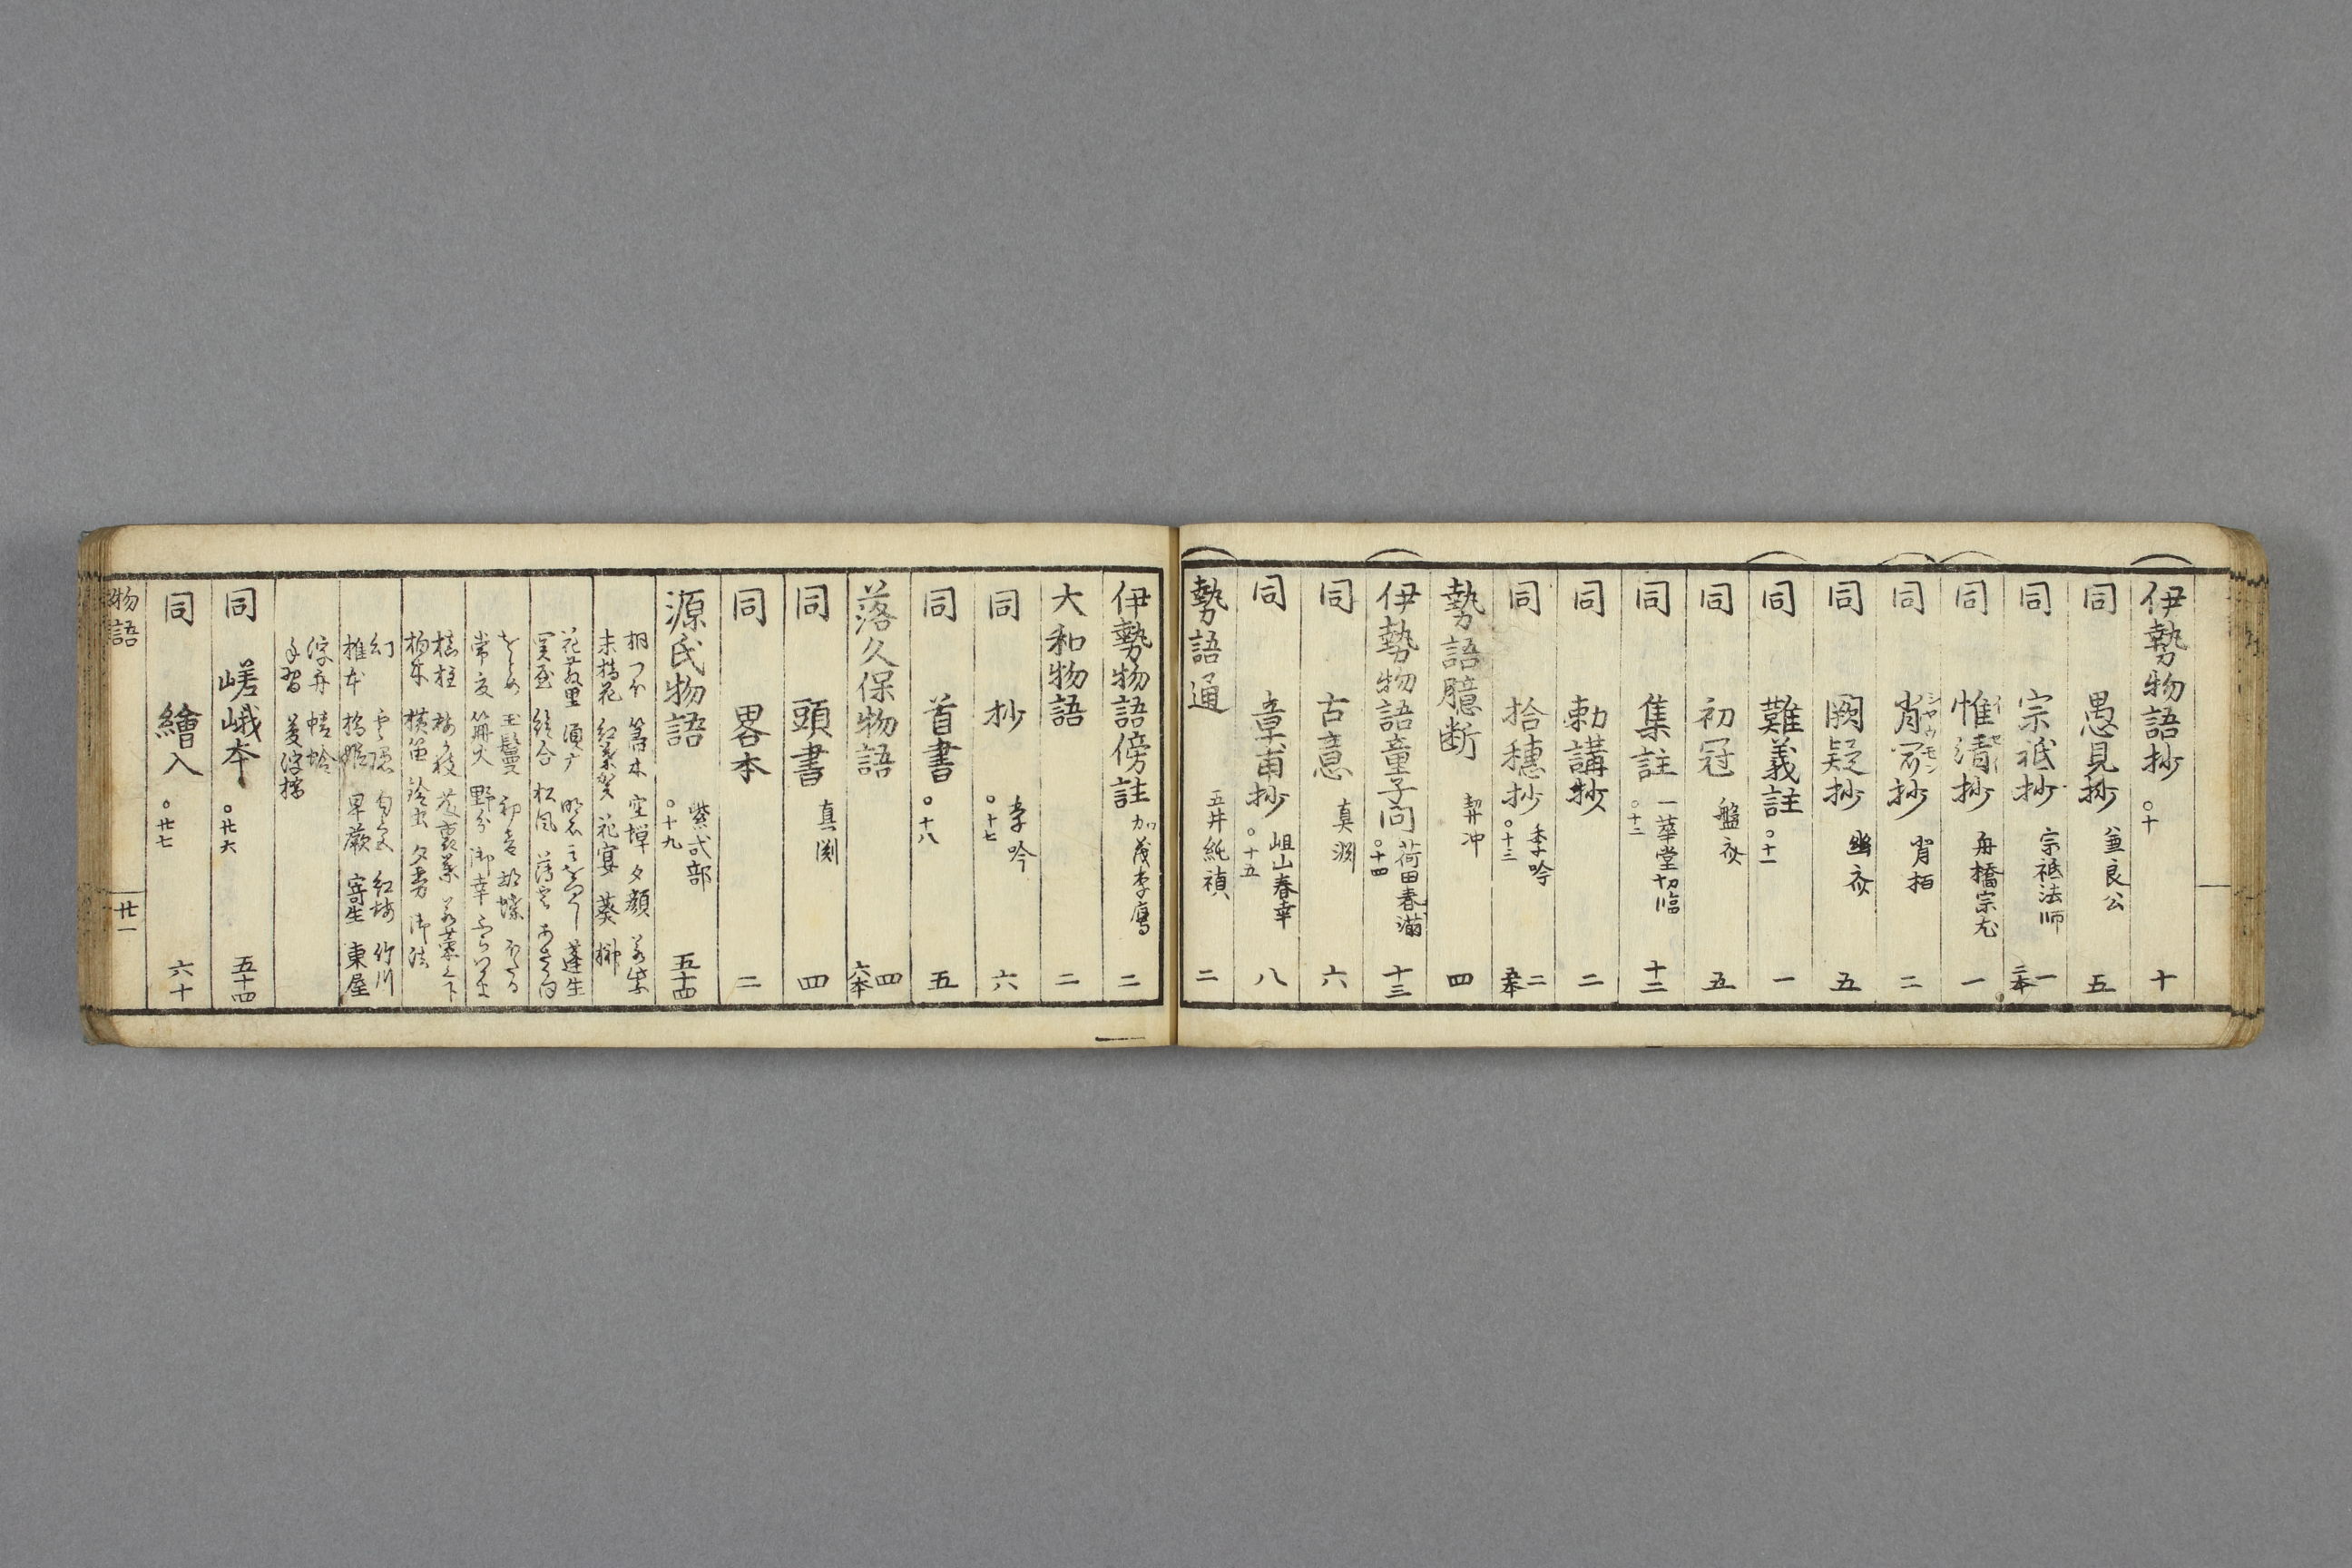 伊勢物語抄 ○十 十
同 愚見抄 兼良公 五
同 宗祇抄 宗祇法師 一 三本
同 惟清抄 舟橋宗尤 一
同 肖聞抄 シヤウモン 肖柏 二
同 闕疑抄 幽斎 五
同 難義註 ○十一 一
同 初冠 盤斎 五
同 集註 一華堂切臨 ○十二 十二
同 勅講抄 二
同 拾穂抄 季吟 ○十三 二 五本
勢語臆断 契冲 四
伊勢物語童子問 荷田春満 ○十四 十三
同 古意 真渕 六
同 章甫抄 岨山春幸 ○十五 八
勢語通 五井純禎 二
伊勢物語傍註 加茂季鷹 二
大和物語 二
同 抄 季吟 ○十七 六
同 首書 ○十八 五
落久保物語 四 六本
同 頭書 真渕 四
同 畧本 二
源氏物語 紫式部 ○十九 五十四
桐つほ 箒木 空蝉 夕顔 若紫
末摘花 紅葉賀 花宴 葵 榊
花散里 須广 明石 みをつくし 蓬生
関屋 絵合 松風 薄雲 あさかほ
をとめ 玉鬘 初音 胡蝶 ほたる
常夏 篝火 野分 御幸 ふちはかま
槙柱 梅か枝 藤裏葉 若菜上下
柏木 横笛 鈴虫 夕霧 御法
幻 雲隠 匂宮 紅梅 竹川
椎本 橋姫 早蕨 寄生 東屋
浮舟 蜻蛉
手習 夢浮橋
同 嵯峨本 ○廿六 五十四
同 繪入 ○廿七 六十
物語 廿一